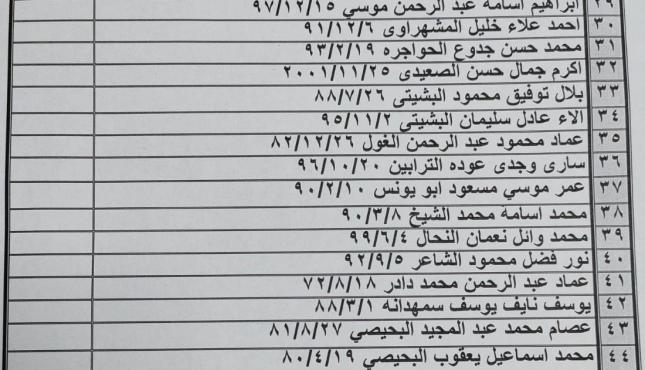 ٢٩ ابراهيم اسامة عبد الرحمن موسي ٩٧/١٢/١٥
٣٠ احمد علاء خليل المشهراوى ٩١/١٢/٦
٣١ محمد حسن جدوع الحواجره ٩٣/٢/١٩
٣٢ اكرم جمال حسن الصعيدى ٢٠٠١/١١/٢٥
٣٣ بلال توفيق محمود البشيتى ٨٨/٧/٢٦
٣٤ الاء عادل سليمان البشيتي ٩٥/١١/٢
٣٥ عماد محمود عبد الرحمن الغول ٨٢/١٢/٢٦
٣٦ سارى وجدى عوده الترابين ٩٦/١٠/٢٠
٣٧ عمر موسي مسعود ابو يونس ٩٠/٢/١٠
٣٨ محمد اسامة محمد الشيخ ٩٠/٣/٨
٣٩ محمد وائل نعمان النحال ٩٩/٦/٤
٤٠ نور فضل محمود الشاعر ٩٢/٩/٥
٤١ عماد عبد الرحمن محمد دادر ٧٢/٨/١٨
٤٢ يوسف نايف يوسف سمهدانه ٨٨/٣/١
٤٣ عصام محمد عبد المجيد البحيصي ٨١/٨/٢٧
٤٤ محمد اسماعيل يعقوب البحيصي ٨٠/٤/١٩